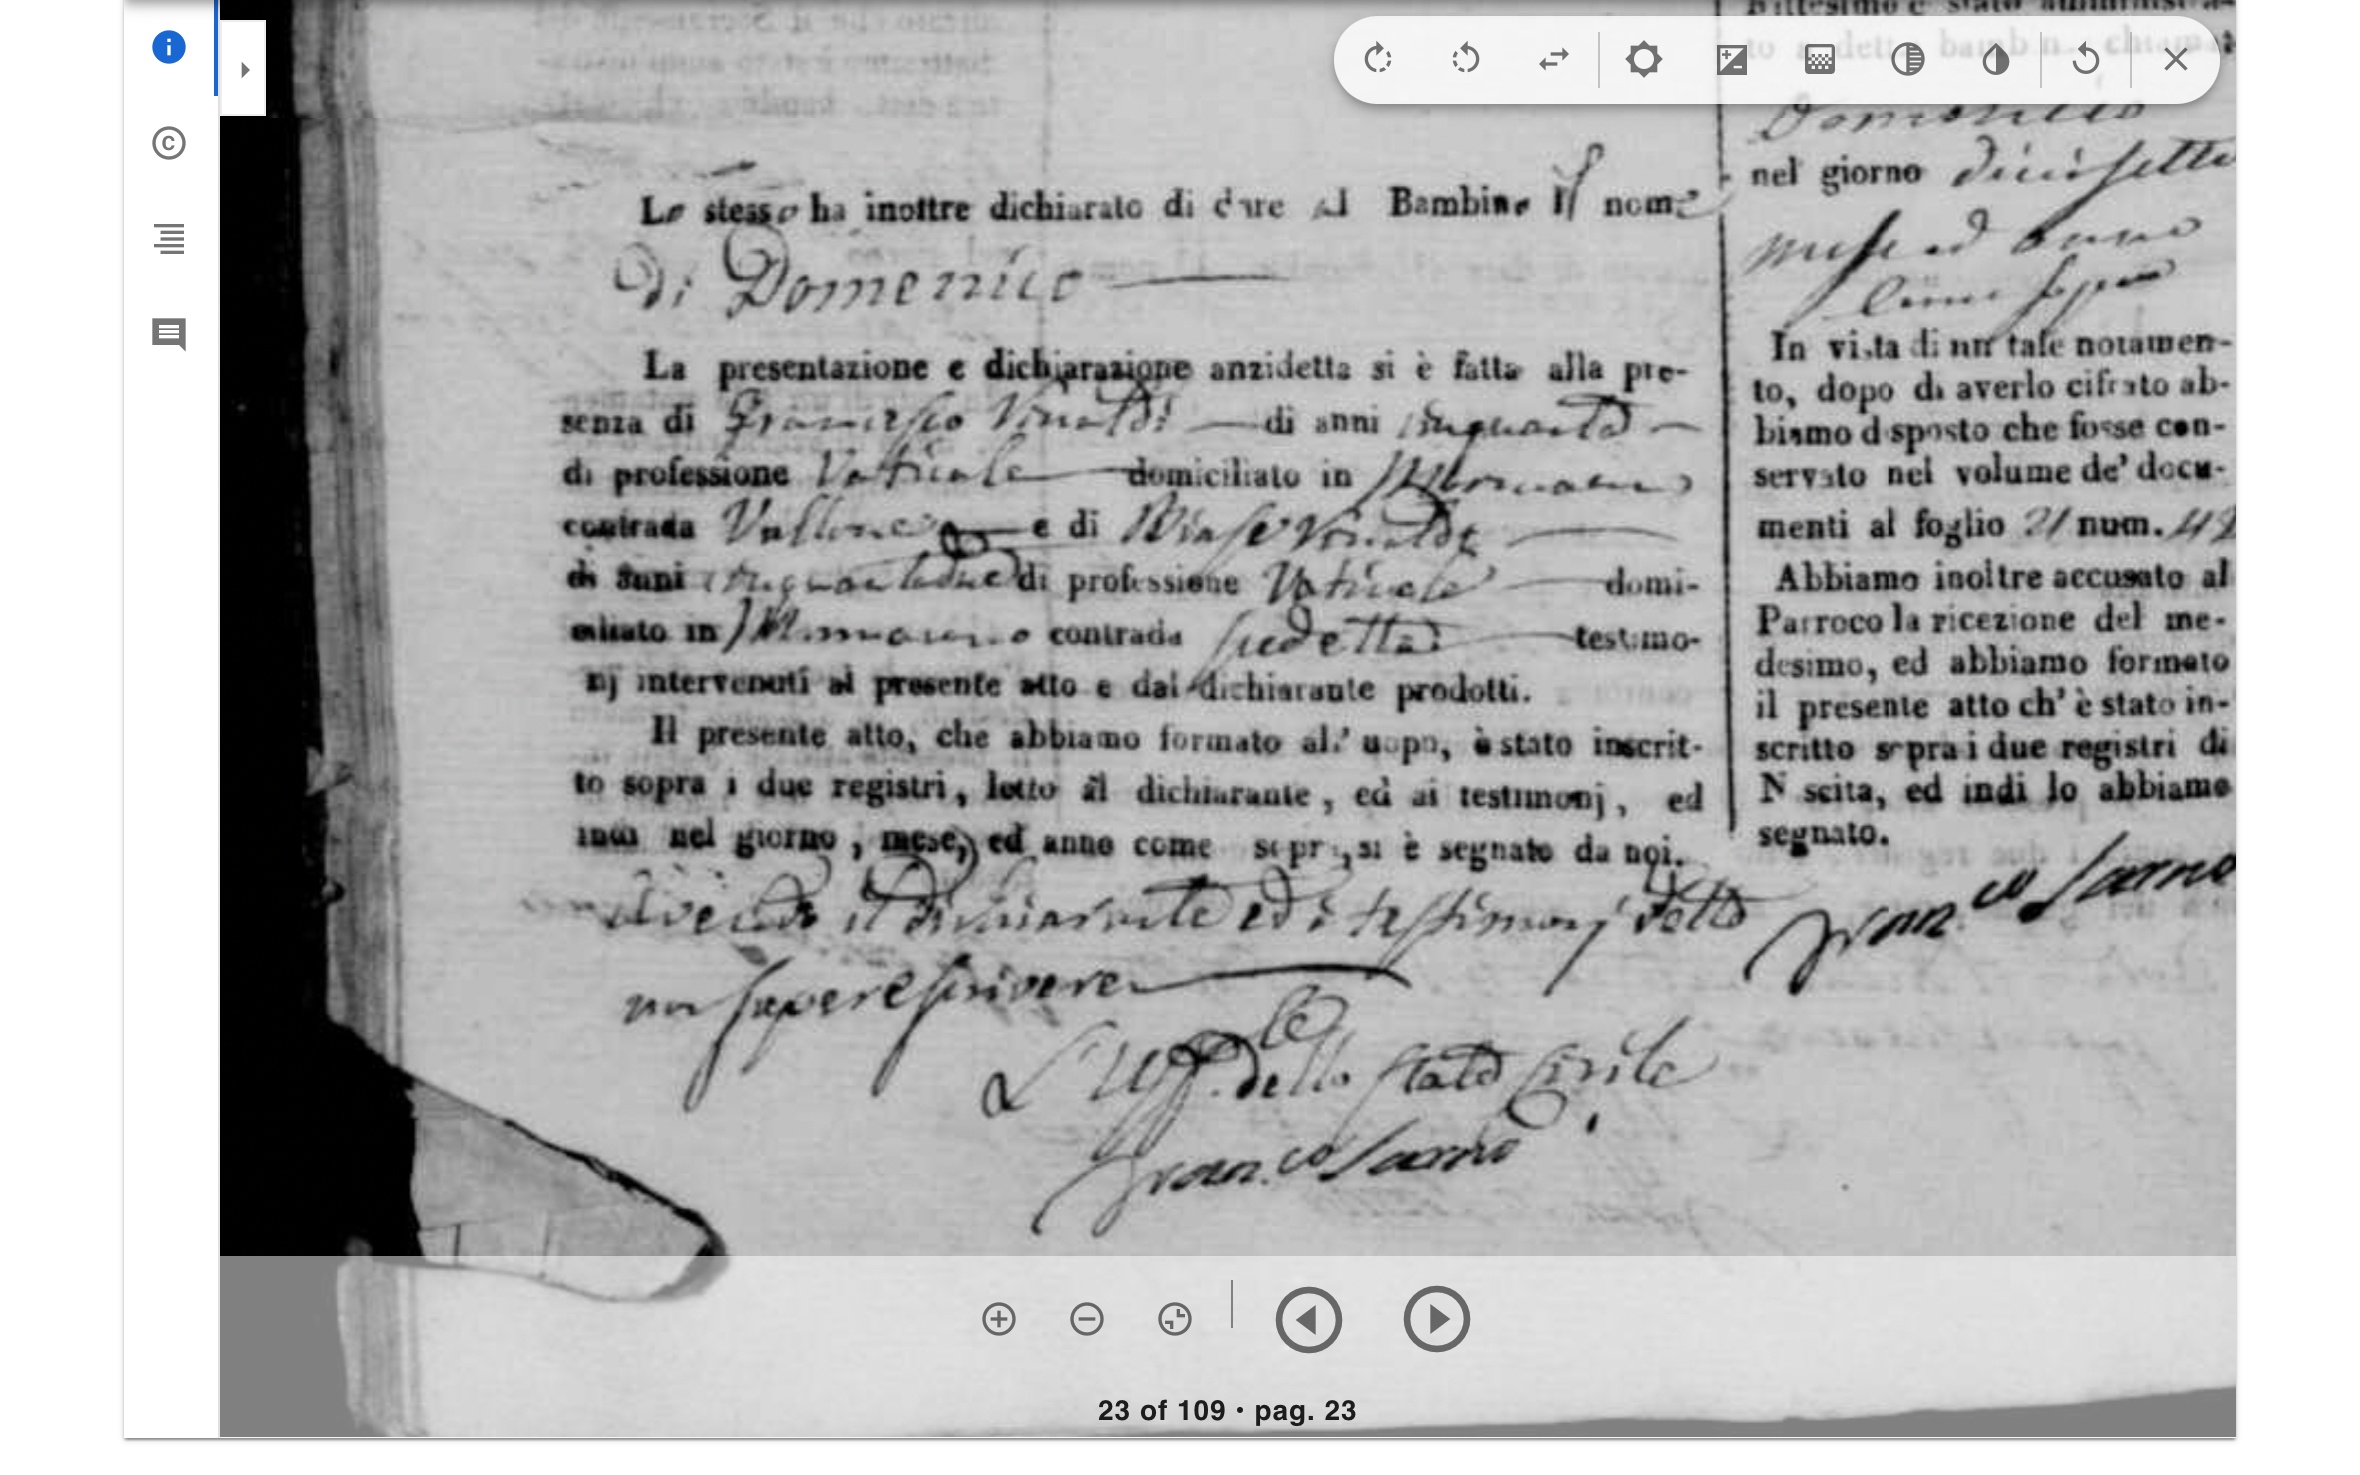 Lo stesso ha inoltre dichiarato di dare al Bambino il nome
di Domenico
La presentazione e dichiarazione anzidetta si è fatta alla pre-
senza di Francesco di anni cinquanta
di professione Vaticale domiciliato in Mormanno
contrada Vallone e di Biase
di anni cinquantadue di professione Vaticale domi-
ciliato in Mormanno contrada sudetta testimo-
nj intervenuti al presente atto e dal dichiarante prodotti.
Il presente atto, che abbiamo formato all' uopo, è stato inscrit-
to sopra i due registri, letto al dichiarante, ed ai testimonj, ed
indi nel giorno, mese, ed anno come sopra, si è segnato da noi.
avendo il dichiarante ed i testimonj detto
non sapere scrivere
L'Uff.le dello Stato Civile
Fran.co Sarno
Battesimo è stato amministra-
to a detto bambino chiama
Domenico
nel giorno diciassette
mese ed anno
come sopra
In vista di un tale notamen-
to, dopo di averlo cifrato ab-
biamo disposto che fosse con-
servato nel volume de' docu-
menti al foglio 21 num. 42
Abbiamo inoltre accusato al
Parroco la ricezione del me-
desimo, ed abbiamo formato
il presente atto ch' è stato in-
scritto sopra i due registri di
Nascita, ed indi lo abbiamo
segnato.
Fran.co Sarno
23 of 109 • pag. 23